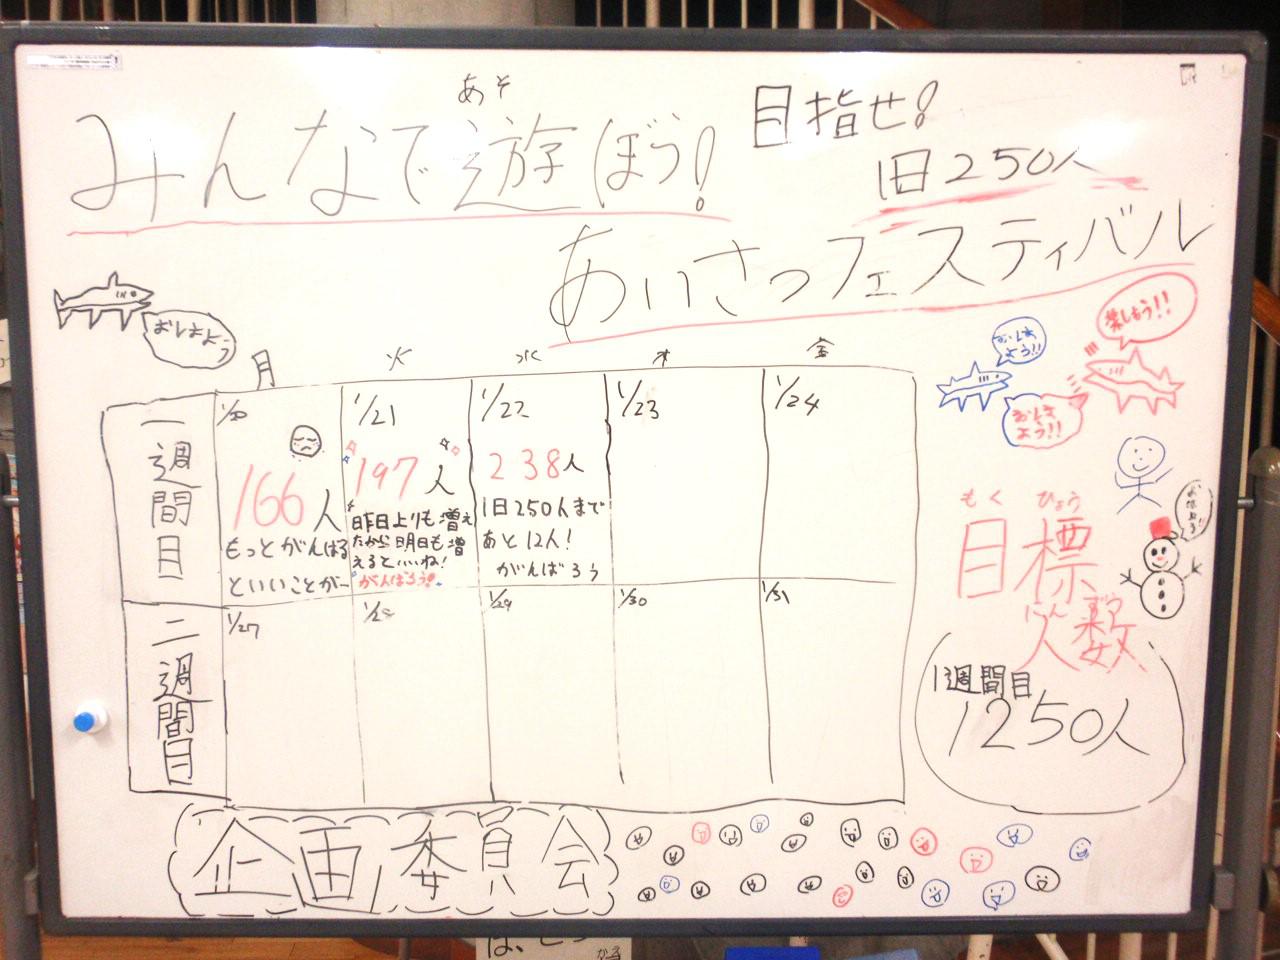 あそ
みんなで遊ぼう!
目指せ!
1日250人
あいさつフェスティバル
おはよう
おはよう!!
楽しもう!!
おはよう!!
月 火 水 木 金
一週間目
1/20
166人
もっとがんばる
といいことが—
1/21
197人
昨日よりも増え
たから明日も増
えるといいね!
がんばろう!
1/22
238人
1日250人まで
あと12人!
がんばろう
1/23
1/24
二週間目
1/27
1/28
1/29
1/30
1/31
もく ひょう
目標
にん ずう
人数
1週間目
1250人
企画委員会